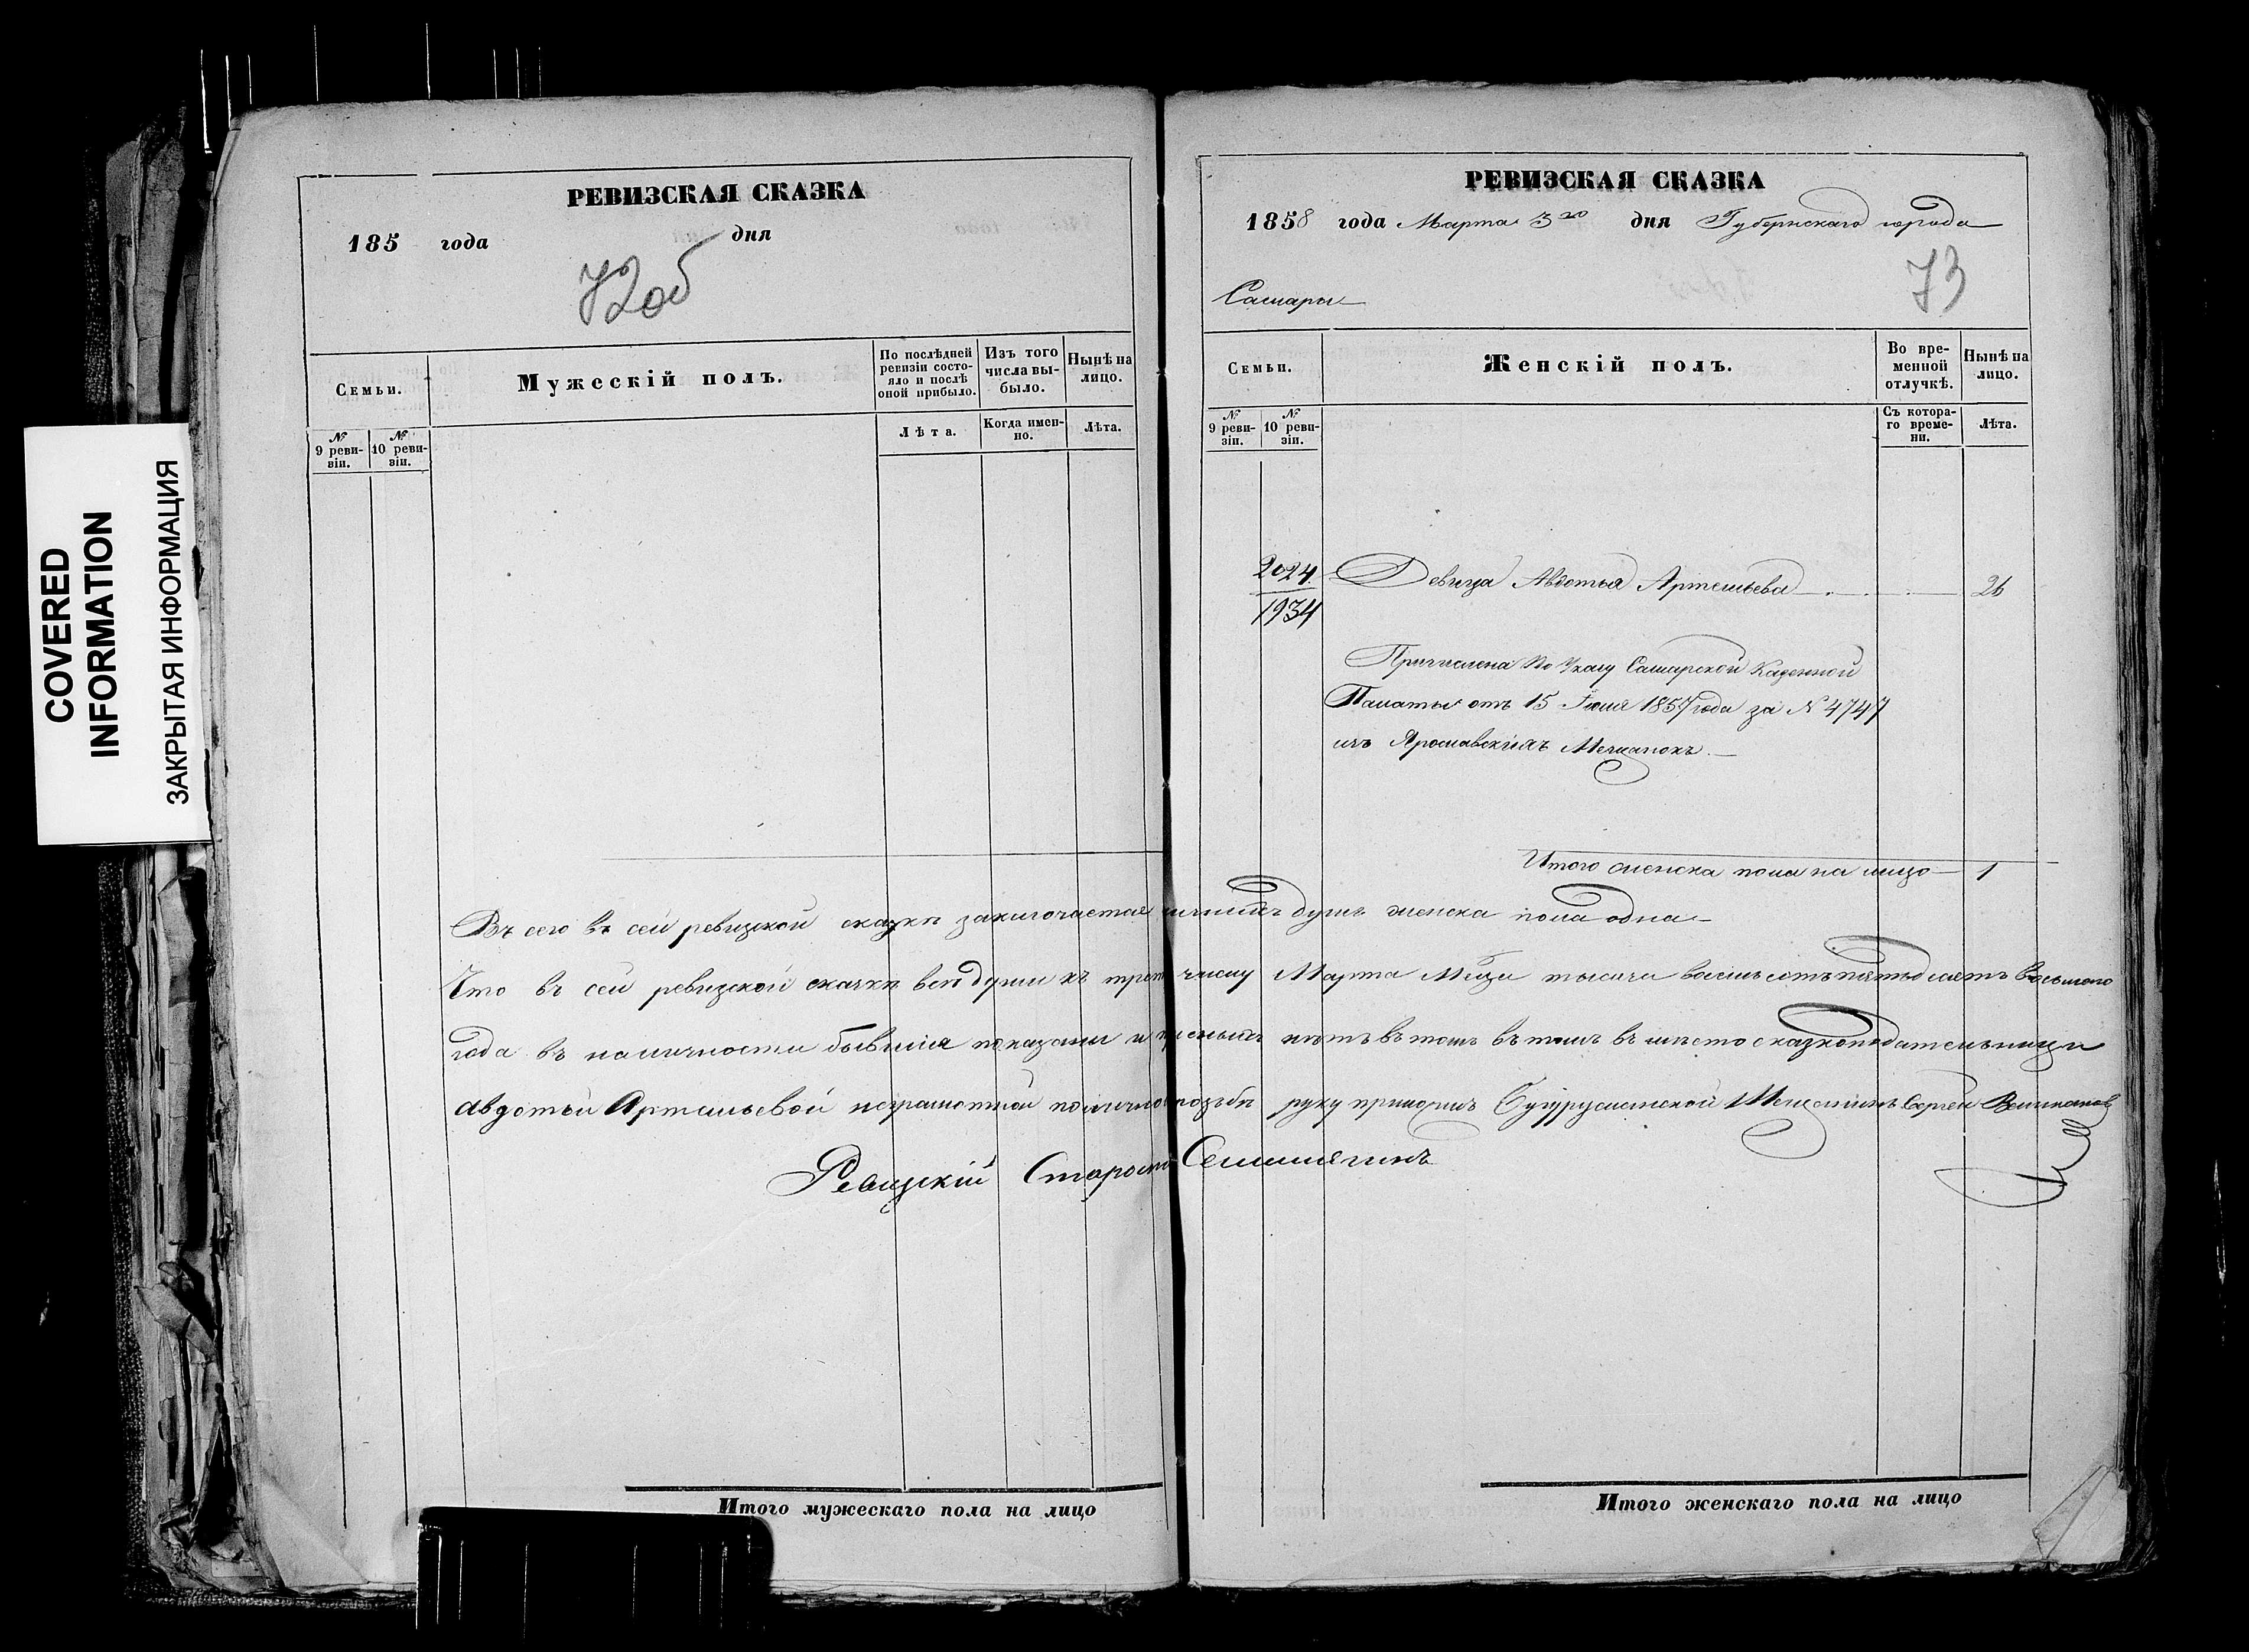 COVERED
INFORMATION
ЗАКРЫТАЯ ИНФОРМАЦИЯ
РЕВИЗСКАЯ СКАЗКА
185 года дня
72об
Семьи.
№ 9 ревизіи.
№ 10 ревизіи.
Мужескій полъ.
По послѣдней
ревизіи состо-
яло и послѣ
оной прибыло.
Лѣта.
Изъ того
числа вы-
было.
Когда имен-
но.
Нынѣ на
лицо.
Лѣта.
Итого мужескаго пола на лицо
РЕВИЗСКАЯ СКАЗКА
1858 года Марта 3го дня Губернскаго города
Самары
73
Семьи.
№ 9 реви-
зіи.
№ 10 реви-
зіи.
Женскій полъ.
Во вре-
менной
отлучкѣ.
Съ котора-
го време-
ни.
Нынѣ на
лицо.
Лѣта.
2024 Девица Авдотья Артемьева 26
1934
Причислена по Указу Самарской Казенной
Палаты отъ 15 1857 года за N 4747
изъ Ярославскихъ Мещанокъ
Итого женска пола на лицо 1
Въ сего въ сей ревизской сказкѣ заключается душъ женска пола одна
Что въ сей ревизской сказкѣ всѣ души къ числу Марта Мцa тысяча восемь сотъ пятьдесятъ восьмого
года въ наличности бывшія показаны и нѣтъ въ томъ въ томъ в мѣсто сказкоподательницы
Авдотьи Артемьевой неграмотной по личной прозьбѣ руку приложилъ Бугурусланской Мещанинъ Сергей
Ревизскій Староста
Итого женскаго пола на лицо